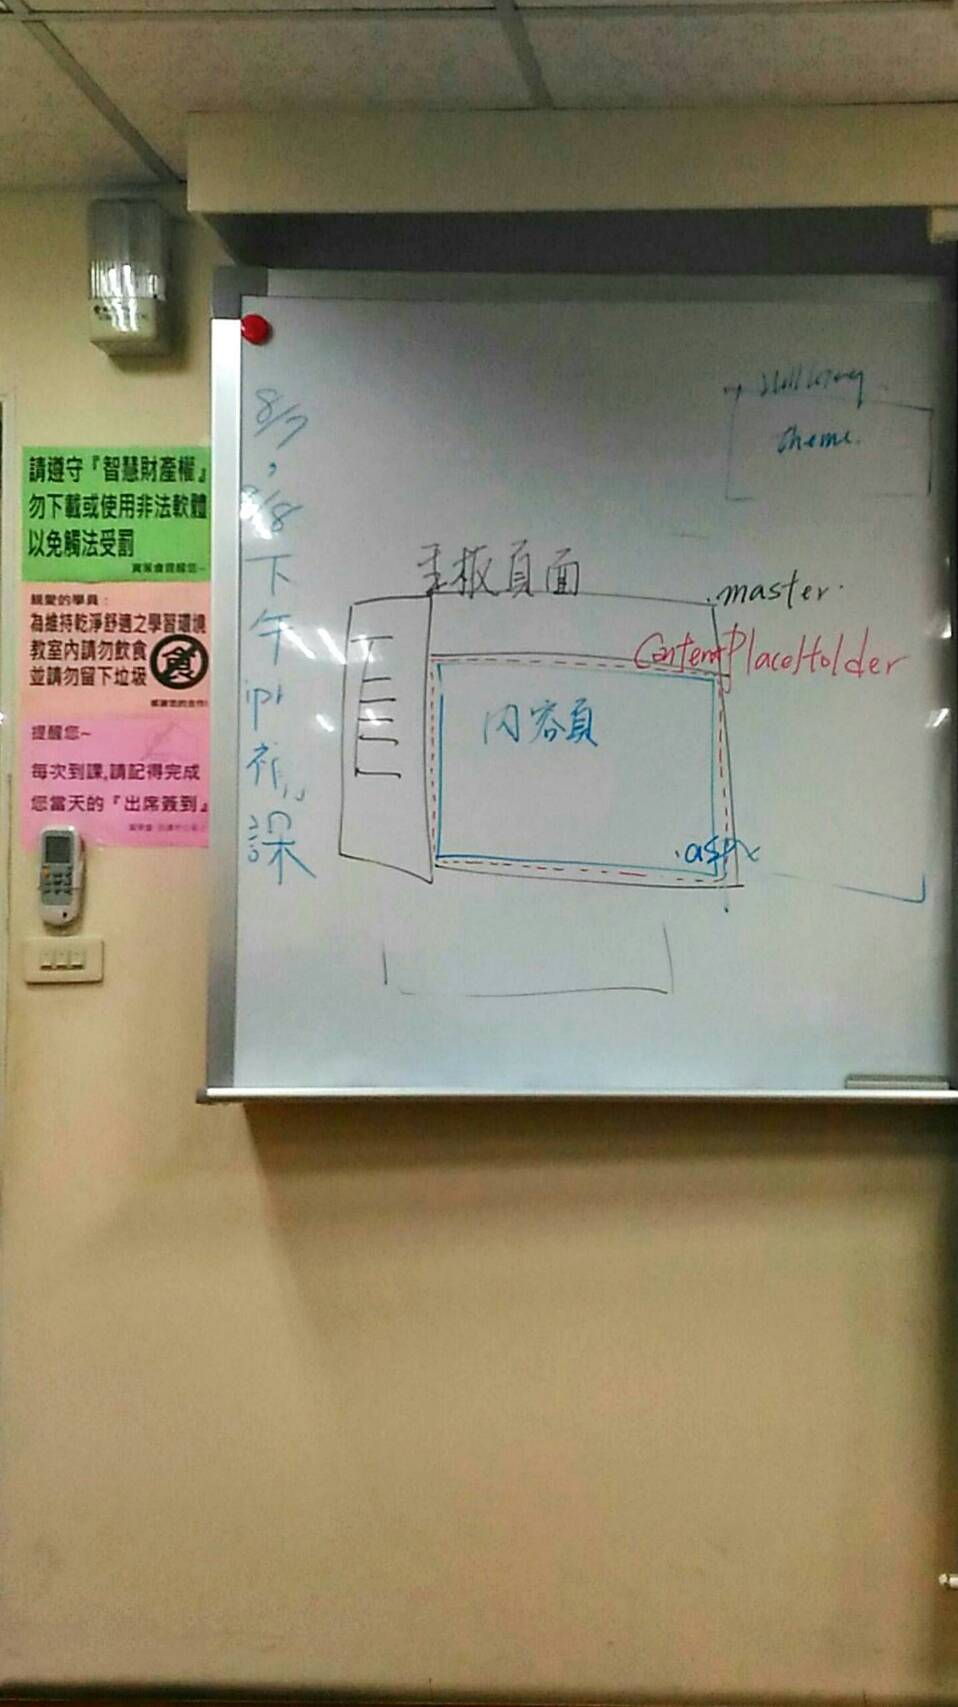 請遵守『智慧財產權』
勿下載或使用非法軟體
以免觸法受罰
資策會提醒您~
親愛的學員：
為維持乾淨舒適之學習環境
教室內請勿飲食
並請勿留下垃圾
食
感謝您的合作!
提醒您~
每次到課,請記得完成
您當天的『出席簽到』
8/7
,
8/8
下
午
課
theme.
主板頁面
.master.
ContentPlaceHolder
內容頁
.aspx